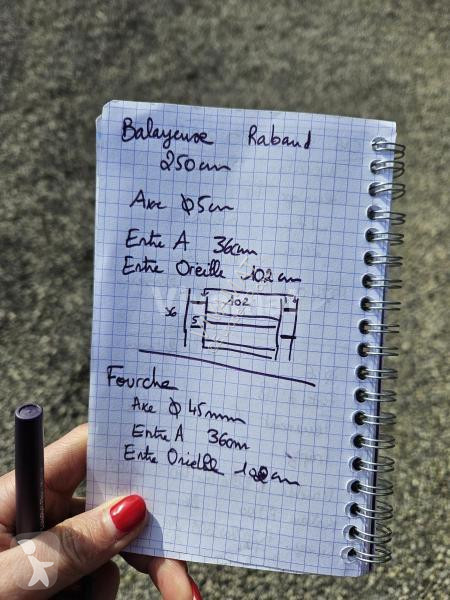 Balayeuse Rabaud
250 cm
Axe ϕ 5cm
Entre A 36cm
Entre Oreille 102 cm
102
36 5
Fourche
Axe ϕ 45mm
Entre A 36cm
Entre Oreille cm